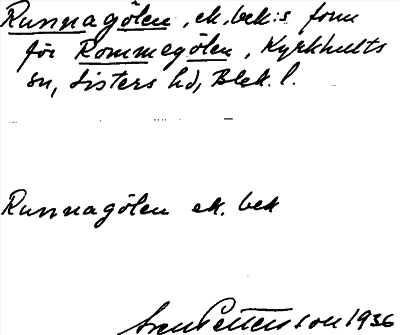 Runnagölen, ek. bek:s form
för Rommegölen, Kyrkhults
sn, Listers hd, Blek. l.
Runnagölen ek. bek
Sven Pettersson 1936